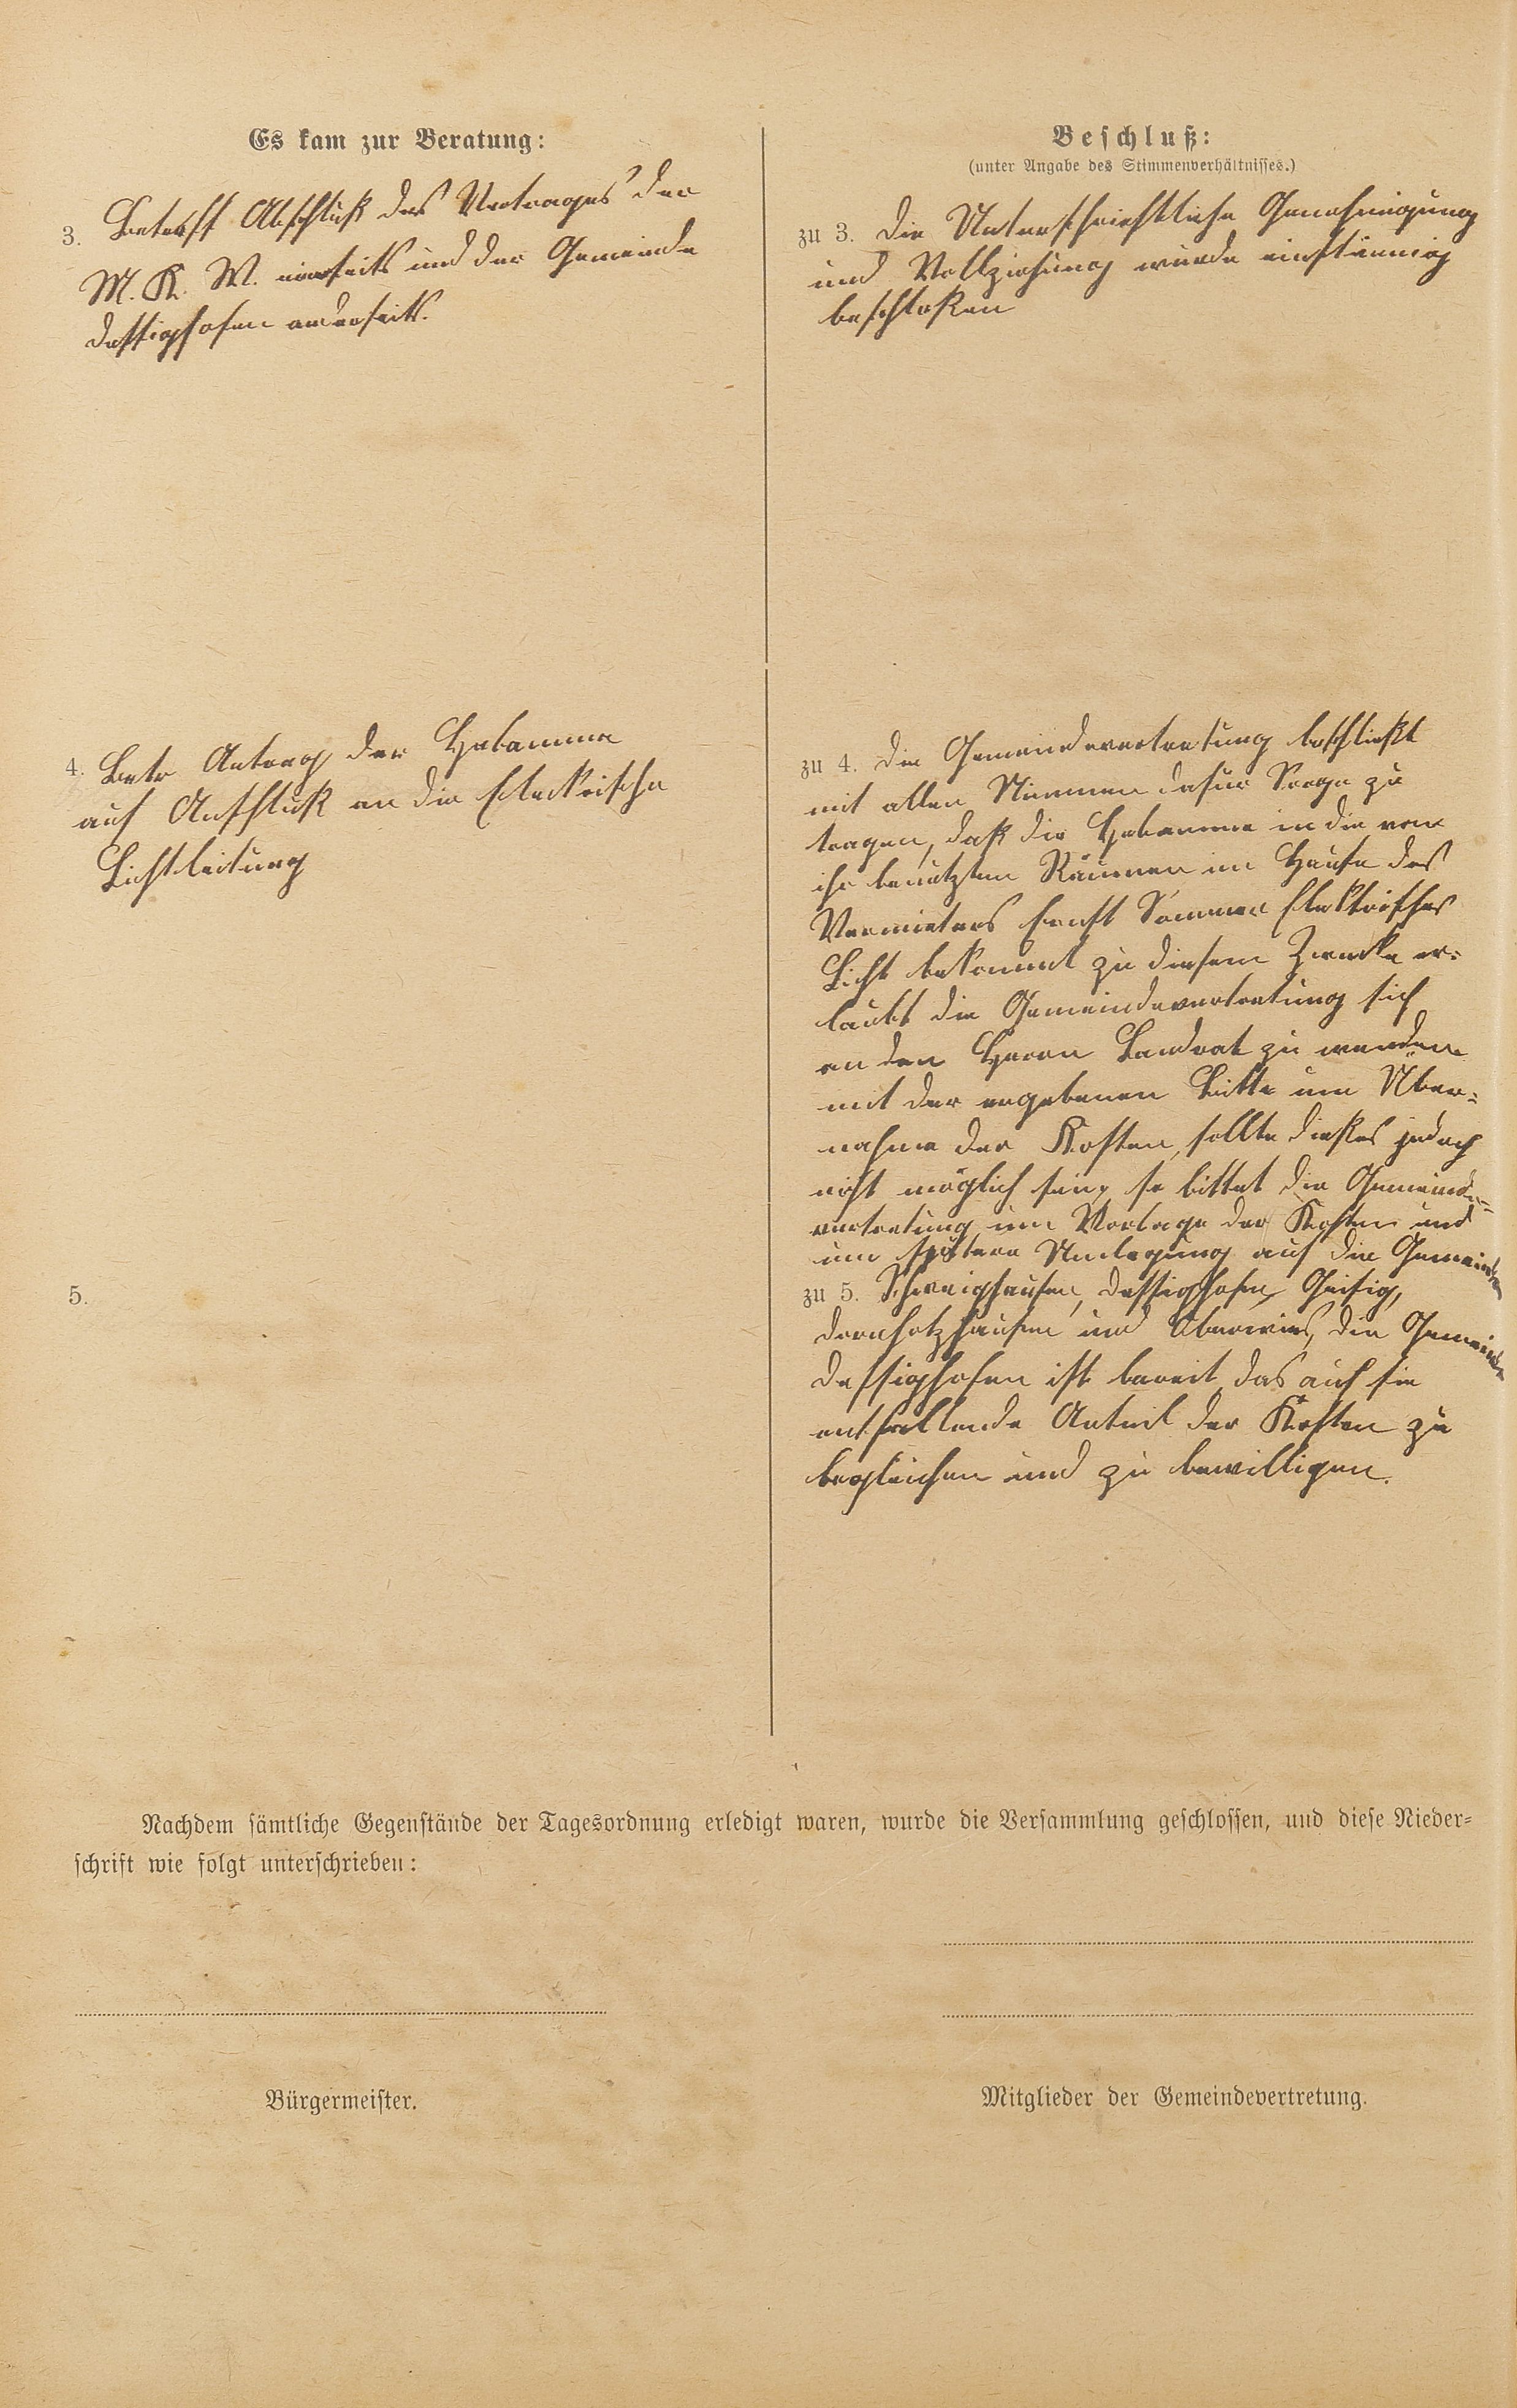 Es kam zur Beratung:
3. Betreff Abschluß des Vertrages der
M. K. W. einerseits und der Gemeinde
Dessighofen anderseits.
4. Betr Antrag der Hebamme
auf Anschluß an die Elecktrische
Lichtleitung
5.
Beschluß:
(unter Angabe des Stimmenverhältnisses.)
zu 3. Die Unterschriftliche Genehmigung
und Vollziehung wurde einstimmig
beschloßen
zu 4. Die Gemeindevertretung beschließt
mit allen Stimmen dafür Sorge zu
tragen, daß die Hebamme in die von
ihr benutzten Räumen im Hause des
Vermieters Ernst Sommer Elektrisches
Licht bekommt zu diesem Zwecke er-
laubt die Gemeindevertretung sich
an den Herrn Landrat zu wenden
mit der ergebenen Bitte um Über-
nahme der Kosten, sollte dießes jedoch
nicht möglich sein, so bittet die Gemeinde-
vertretung um Vorlage der Kosten und
um spätere Umlegung auf die Gemeinden
zu 5. Schweighausen, Dessighofen, Geisig,
Dornholzhausen und Oberwies, die Gemeinde
Dessighofen ist bereit das auf sie
entfallende Anteil der Kosten zu
begleichen und zu bewilligen.
Nachdem sämtliche Gegenstände der Tagesordnung erledigt waren, wurde die Versammlung geschlossen, und diese Nieder-
schrift wie folgt unterschrieben:
Bürgermeister.
Mitglieder der Gemeindevertretung.